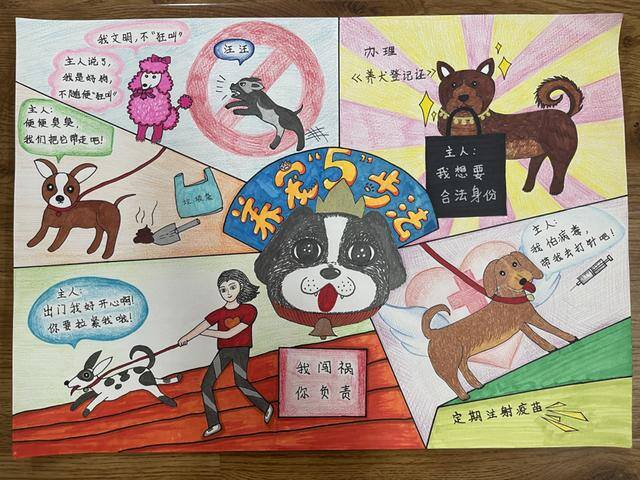 我文明,不"狂叫"
主人说了,
我是好狗,
不随便"狂叫"
汪汪
办理
《养犬登记证》
主人:
我想要
合法身份
主人:
便便臭臭,
我们把它带走吧!
垃圾袋
养宠"5"步法
主人:
我怕病毒,
带我去打针吧!
主人:
出门我好开心啊!
你要拉紧我哦!
我闯祸
你负责
定期注射疫苗